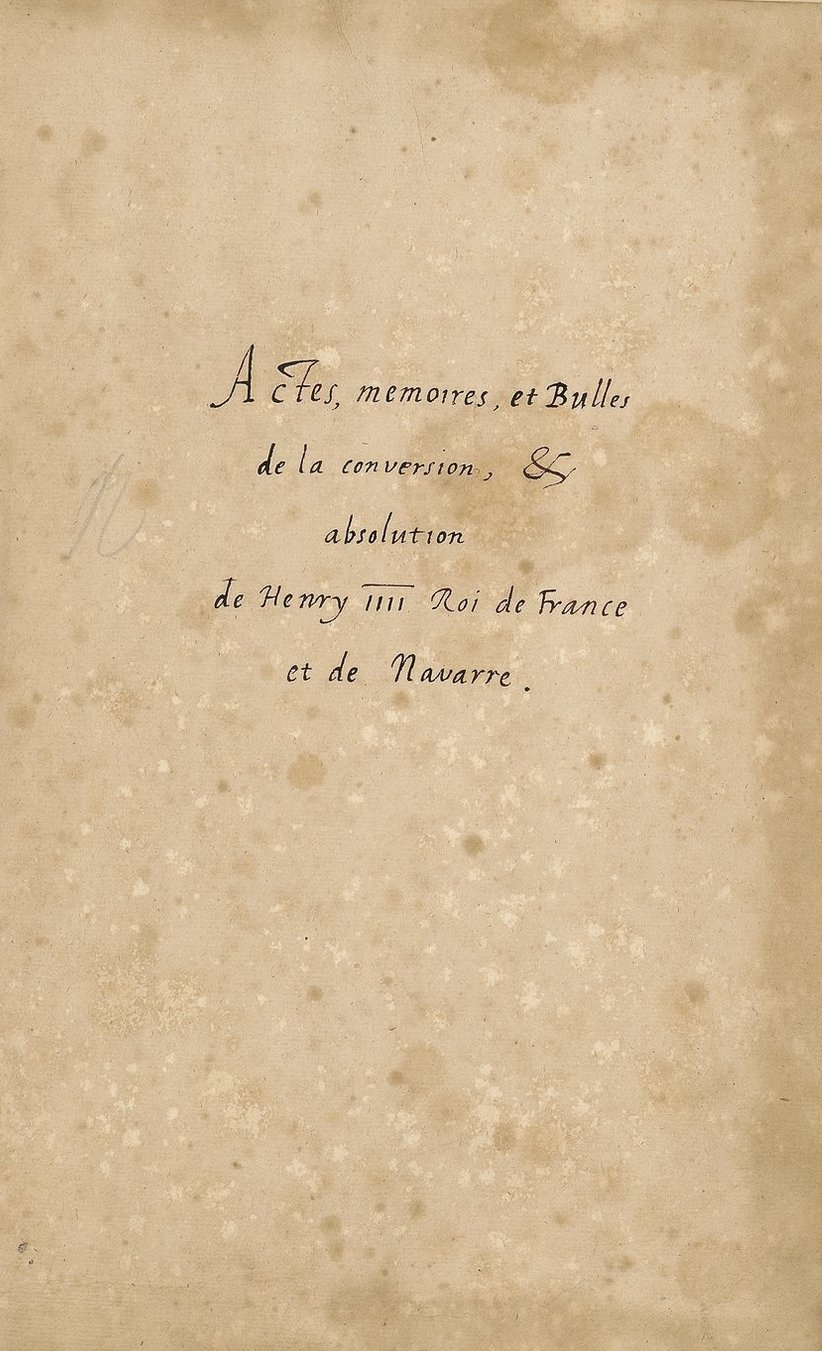 Actes, memoires, et Bulles
de la conversion, &
absolution
de Henry IIII Roi de France
et de Navarre.